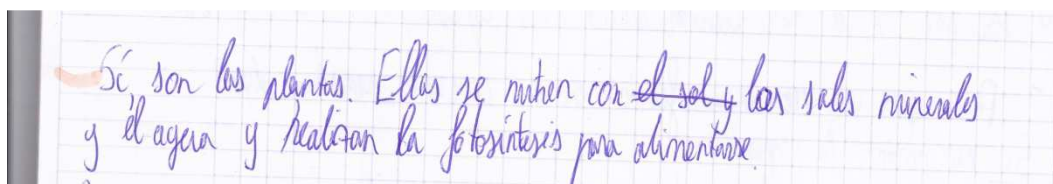 Sí, son las plantas. Ellas se nutren con el sol y las sales minerales
y el agua y realizan la fotosíntesis para alimentarse.